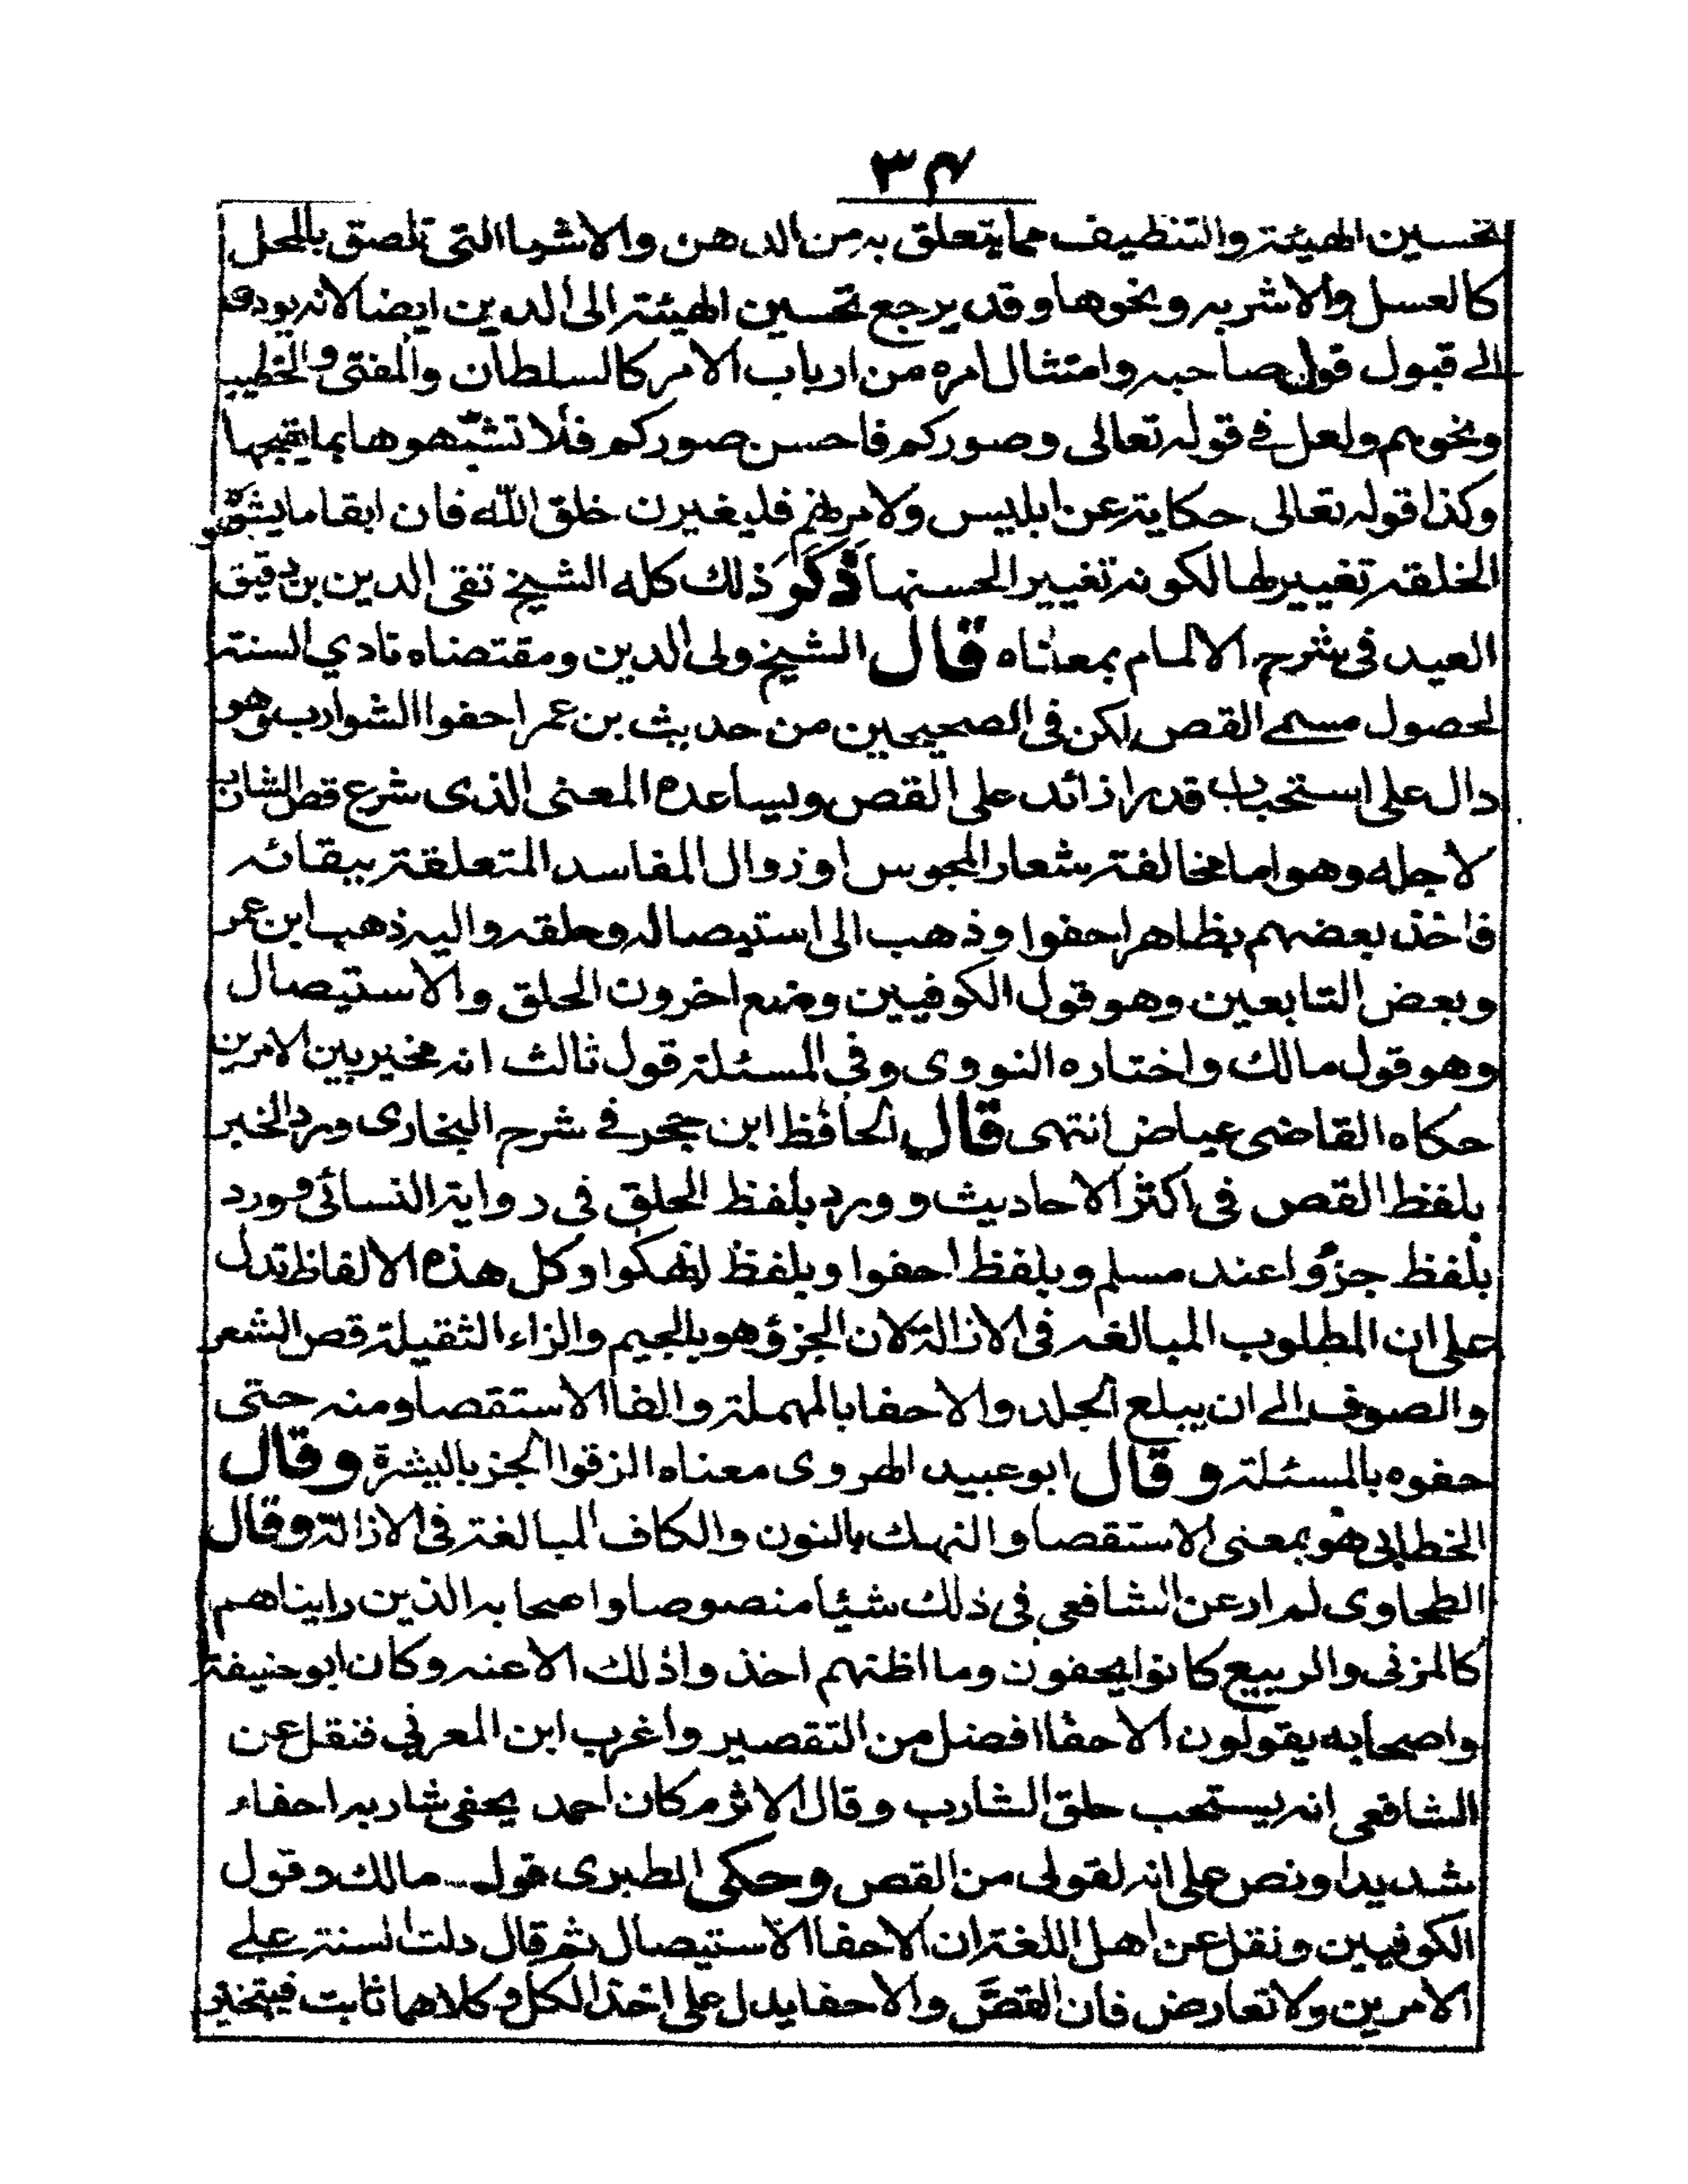 ٣٤
تحسين الهيئة والتنظيف مما يتعلق به من الدهن والاشيا التى تلصق بالمحل
كالعسل والاشربه ونحوها وقد يرجع تحسين الهيئة الى الدين ايضا لانه يودى
الے قبول قول صاحبه وامتثال امره من ارباب الامر كالسلطان والمفتى والخطيب
ونحوهم ولعل فے قوله تعالى وصوركم فاحسن صوركم فلا تشبّهوها بما يقبحها
وكذا قوله تعالى حكاية عن ابليس ولامرنهم فليغيرن خلق الله فان ابقا ما يشوّه
الخلقه تغيير لها لكونه تغيير الحسنها ذكر ذلك كله الشيخ تقى الدين بن دقيق
العيد فى شرح الالمام بمعناه قال الشيخ ولى الدين ومقتضاه تادي السنة
لحصول مسمے القص لكن فى الصحيحين من حديث بن عمر احفوا الشوارب وهو
دال على استحباب قدر ازائد على القص ويساعده المعنى الذى شرع قص الشارب
لاجله وهو اما مخالفة شعار المجوس او زوال المفاسد المتعلقة ببقائه
فاخذ بعضهم بظاهر احفوا وذهب الى استيصاله وحلقه واليه ذهب ابن عمر
وبعض التابعين وهو قول الكوفيين ومنع اخرون الحلق والاستيصال
وهو قول مالك واختاره النووى وفى المسئلة قول ثالث انه مخير بين الامرين
حكاه القاضى عياض انتهى قال الحافظ ابن حجر فے شرح البخارى ورد الخبر
بلفظ القص فى اكثر الاحاديث وورد بلفظ الحلق فى رواية النسائى وورد
بلفظ جزؤا عند مسلم وبلفظ احفوا وبلفظ انهكوا وكل هذه الالفاظ تدل
على ان المطلوب المبالغه فى الازالة لان الجزؤ هو بالجيم والزاء الثقيلة قص الشعر
والصوف الے ان يبلع الجلد والاحفا بالمهملة والفا الاستقصا ومنه حتى
حفوه بالمسئلة وقال ابو عبيد الهروى معناه الزقوا الجز بالبشرة وقال
الخطابى هو بمعنى الاستقصا والنهك بالنون والكاف المبالغة فى الازالة وقال
الطحاوى لم ار عن الشافعى فى ذلك شيئا منصوصا واصحابه الذين راينا هم
كالمزنى والربيع كانوا يحفون وما اظنهم اخذ واذلك الا عنه وكان ابو حنيفة
واصحابه يقولون الاحفا افضل من التقصير واغرب ابن المعربي فنقل عن
الشافعى انه يستحب حلق الشارب وقال الاثرم كان احمد يحفى شاربه احفاء
شديدا ونص على انه لقولى من القص وحكى الطبرى قول مالك وقول
الكوفيين ونقل عن اهل اللغة ان الاحفا الاستيصال ثم قال دلت السنة علے
الامرين ولا تعارض فان القصّ والاحفا يدل على اخذ الكل وكلاهما ثابت فيتخير